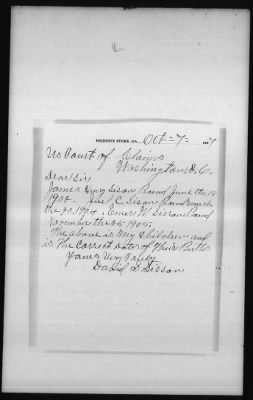 HIGDON'S STORE, GA., Oct-7- 1907
US Court of Claims
Washington, D.C.
Dear Sir
James Sisson Band June the 18
1902. C Sisson Band March
the 20. 1904. Emer M Sisson Band
November the 25 1905.
The above is My Children and
is The Correct dates of Their Births
Yours Very Truly
David S Sisson